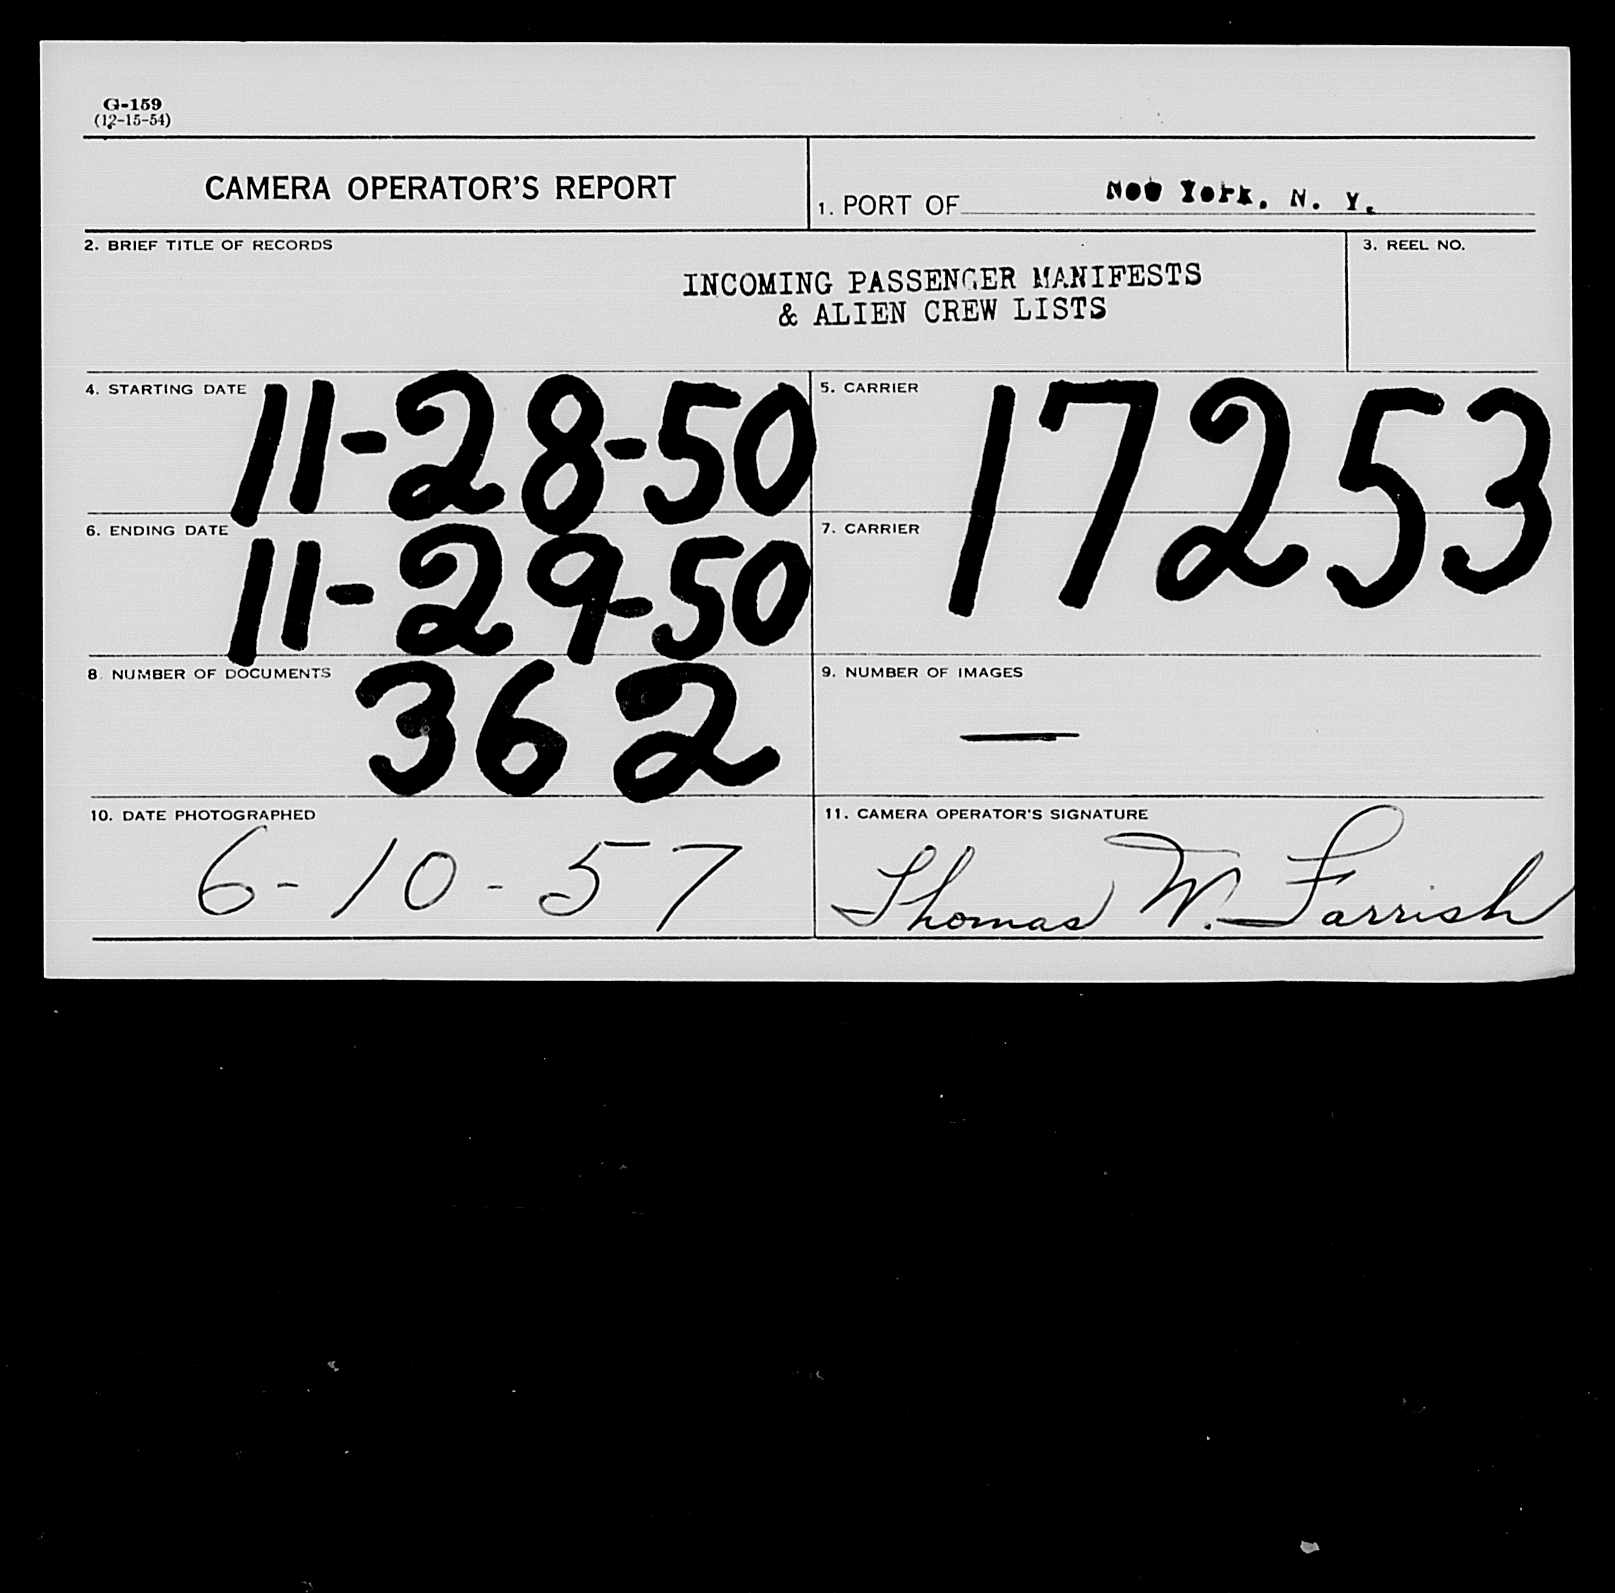 G-159
(12-15-54)
CAMERA OPERATOR'S REPORT
1. PORT OF New York, N. Y.
2. BRIEF TITLE OF RECORDS
INCOMING PASSENGER MANIFESTS
& ALIEN CREW LISTS
3. REEL NO.
4. STARTING DATE 11-28-50
5. CARRIER
17253
6. ENDING DATE 11-29-50
7. CARRIER
8. NUMBER OF DOCUMENTS 362
9. NUMBER OF IMAGES
—
10. DATE PHOTOGRAPHED
6-10-57
11. CAMERA OPERATOR'S SIGNATURE
Thomas W. Farrish